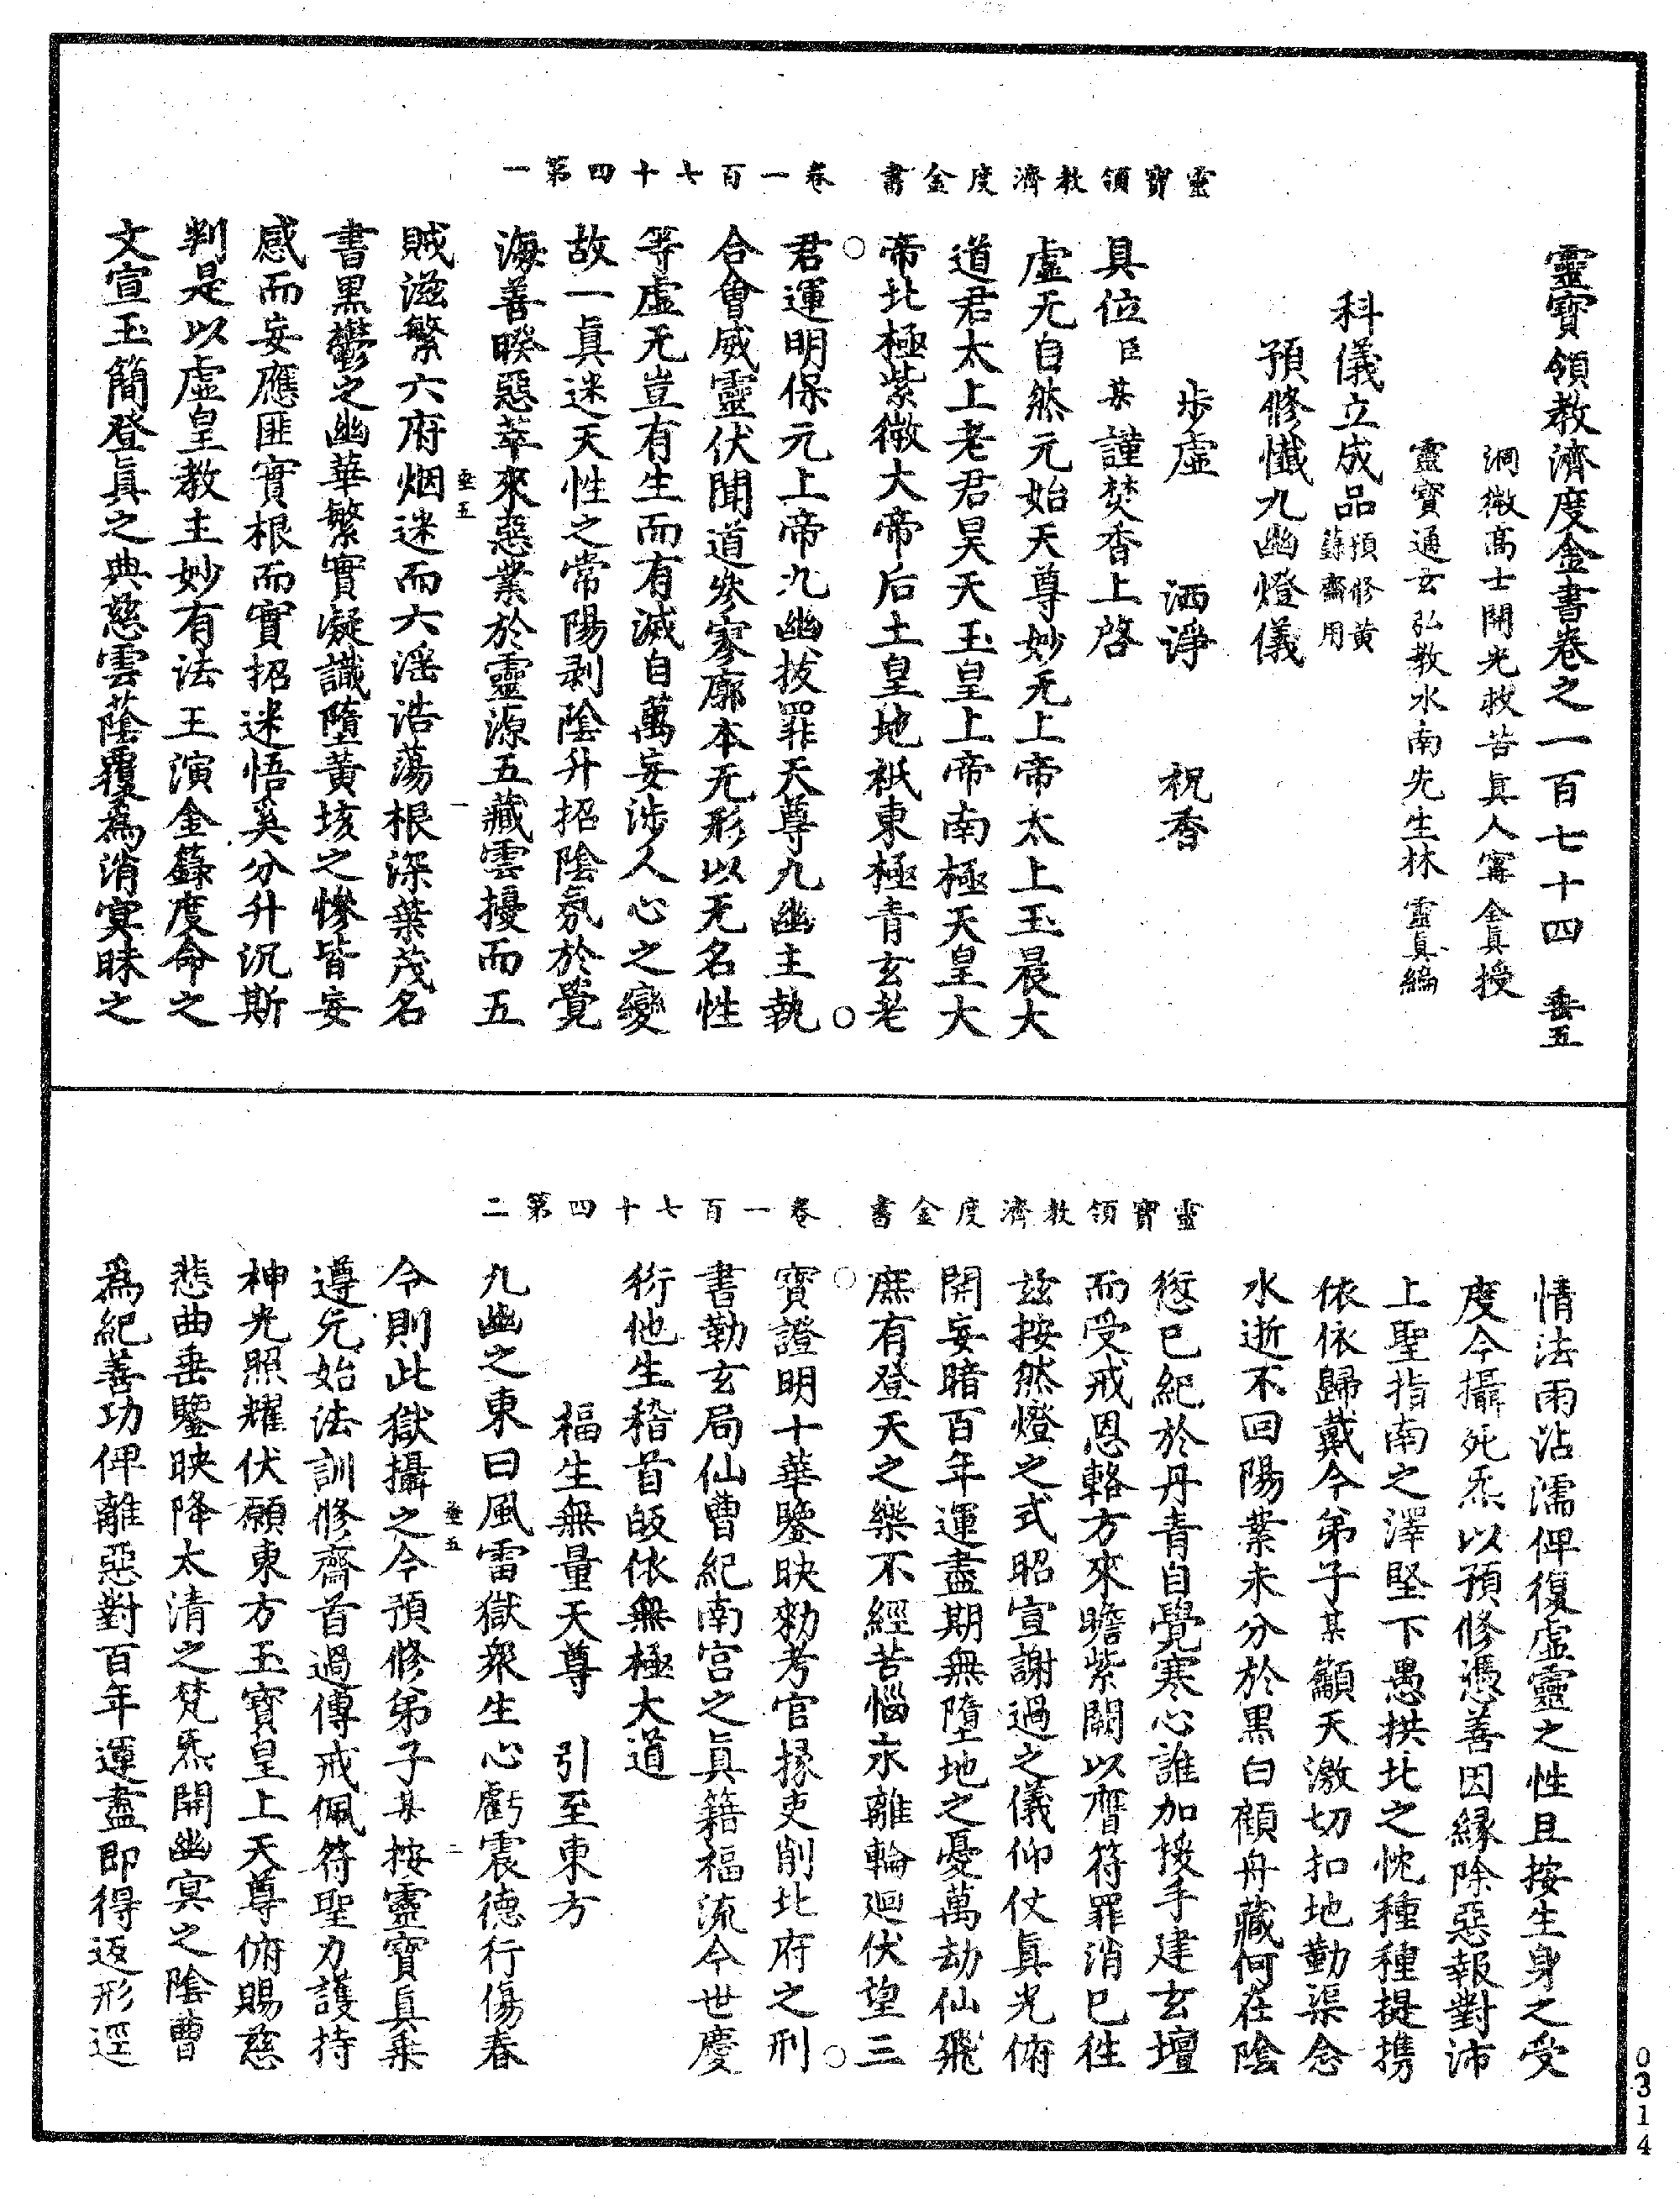 靈寶領教濟度金書　卷一百七十四第一
靈寶領教濟度金書卷之一百七十四　垂五
洞微高士開光救苦眞人甯　全眞　授
靈寶通玄弘教水南先生林　靈眞　編
科儀立成品預修黃籙齋用
預修懺九幽燈儀
步虛　洒淨　祝香
具位臣某謹焚香上啓
虛无自然元始天尊妙无上帝太上玉晨大
道君太上老君昊天玉皇上帝南極天皇大
帝北極紫微大帝后土皇地祇東極青玄老
君運明保元上帝九幽拔罪天尊九幽主執
合會威靈伏聞道炁寥廓本无形以无名性
等虛无豈有生而有滅自萬妄涉人心之變
故一眞迷天性之常陽剥陰升招陰氛於覺
海善暌惡萃來惡業於靈源五藏雲擾而五
賊滋繁六府烟迷而六淫浩蕩根深葉茂名
書黑鬱之幽華繁實凝識墮黃垓之慘皆妄
感而妄應匪實根而實招迷悟奚分升沉斯
判是以虛皇教主妙有法王演金籙度命之
文宣玉簡登眞之典慈雲䕃覆爲消冥昧之
垂五
一
靈寶領教濟度金書　卷一百七十四第二
情法雨沾濡俾復虛靈之性且按生身之受
度今攝死炁以預修憑善因緣除惡報對沛
上聖指南之澤堅下愚拱北之忱種種提携
依依歸戴今弟子某籲天激切扣地勤渠念
水逝不回陽業未分於黑白顧舟藏何在陰
愆已紀於丹青自覺寒心誰加援手建玄壇
而受戒恩輅方來瞻紫闕以膺符罪消已徃
玆按然燈之式昭宣謝過之儀仰仗眞光俯
開妄暗百年運盡期無墮地之憂萬劫仙飛
庶有登天之樂不經苦惱永離輪廻伏望三
寶證明十華鑒映勑考官掾吏削北府之刑
書勒玄局仙曹紀南宫之眞籍福流今世慶
衍他生稽首皈依無極大道
福生無量天尊　引至東方
九幽之東曰風雷獄衆生心虧震德行傷春
令則此獄攝之今預修弟子某按靈寶眞乗
遵元始法訓修齋首過傳戒佩符聖力護持
神光照耀伏願東方玉寶皇上天尊俯賜慈
悲曲垂鑒映降太清之梵炁開幽冥之陰曹
爲紀善功俾離惡對百年運盡即得返形逕
垂五
二
0314